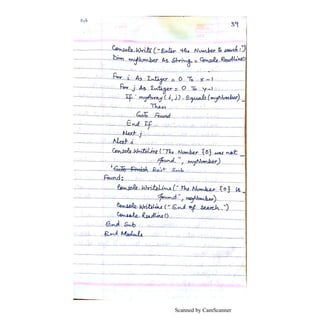 39
Console.Write("Enter the Number to search:")
Dim myNumber As String = Console.Readline()
For i As Integer = 0 To x-1
For j As Integer = 0 To y-1
If myArray(i,j).Equals(myNumber) _
Then
GoTo Found
End If
Next j
Next i
Console.WriteLine("The Number {0} was not _
found.", myNumber)
'GoTo Finish Exit Sub
Found:
Console.WriteLine("The Number {0} is _
found", myNumber)
Console.WriteLine("End of search.")
Console.Readline()
End Sub
End Module
Scanned by CamScanner